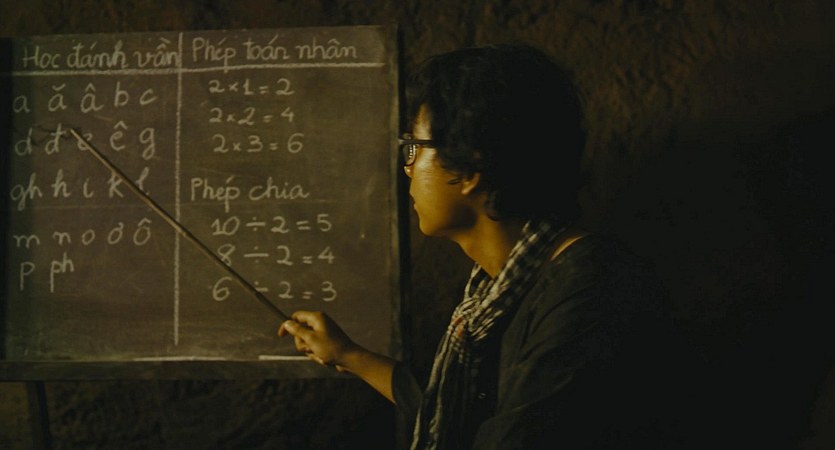 Học đánh vần
a ă â b c
d đ e ê g
gh h i k l
m n o ơ ô
p ph
Phép toán nhân
2 x 1 = 2
2 x 2 = 4
2 x 3 = 6
Phép chia
10 ÷ 2 = 5
8 ÷ 2 = 4
6 ÷ 2 = 3